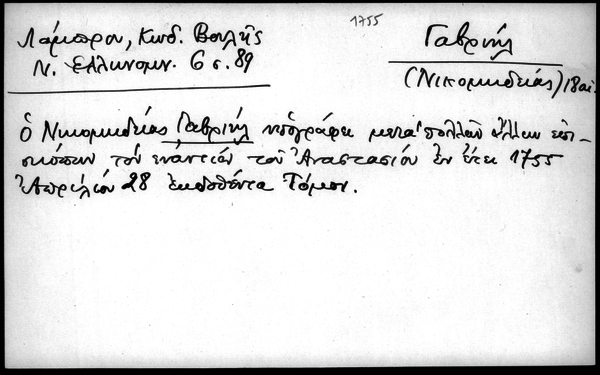 1755
Λάμπρου, Κωδ. Βουλής
Ν. Ελληνομν. 6 σ. 89
Γαβριήλ
(Νικομηδείας) 18 αι.
ὁ Νικομηδείας Γαβριήλ υπογράφει μετά πολλών άλλων επι-
σκόπων τον εναντίον του Αναστασίου εν έτει 1755
Ἀπριλίου 28 ἐκδοθέντα Τόμον.